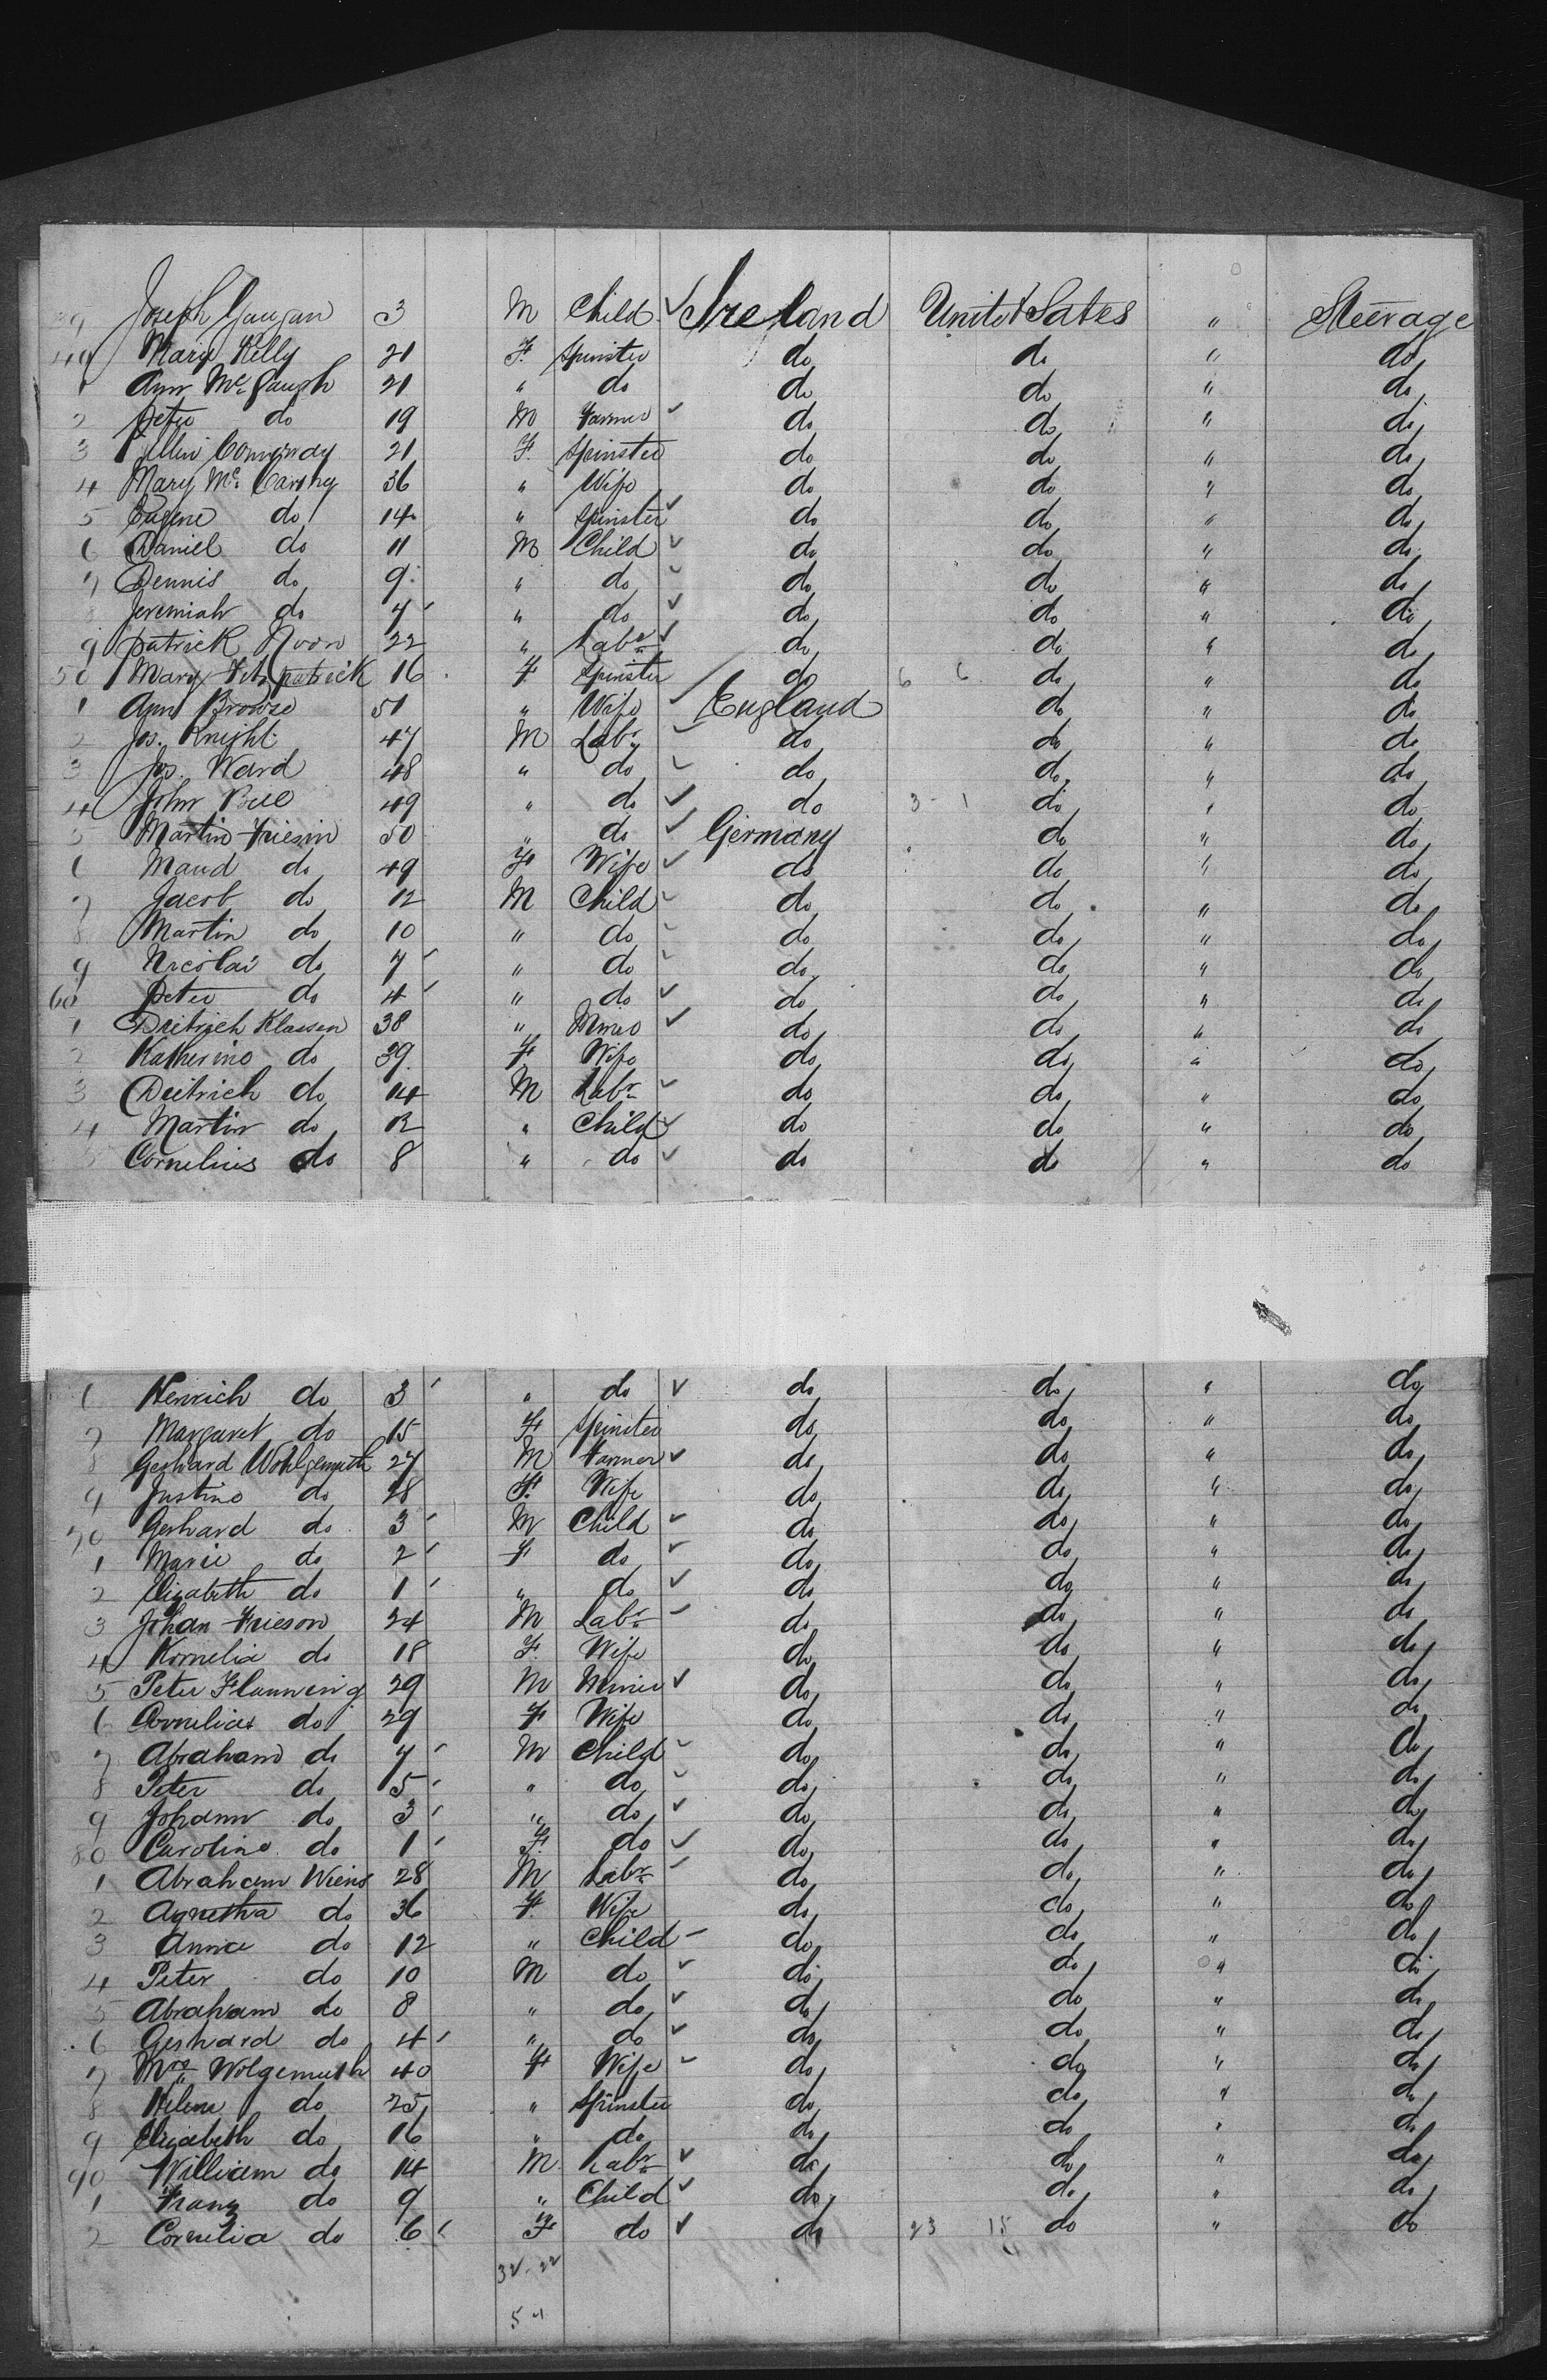 39 Joseph Gaugan 3 M Child ✓ Ireland Unitet Sates " Steerage
40 Mary Kelly 21 F. Spinster do do " do
1 Ann Mc Gaugh 21 " do do do " do
2 Peter do 19 M Farmer ✓ do do " do
3 Ellen 21 F. Spinster do do " do
4 Mary Mc Carthy 36 " Wife do do " do
5 Eugene do 14 " Spinster ✓ do do " do
6 Daniel do 11 M Child ✓ do do " do
7 Dennis do 9 " do ✓ do do " do
8 Jeremiah do 7 " do ✓ do do " do
9 Patrick Noon 22 " Labr ✓ do do " do
50 Mary Fitzpatrick 16 F. Spinster do 6 6 do " do
1 Ann Browse 51 " Wife ✓ England do " do
2 Jos. Knight 47 M Labr ✓ do do " do
3 Jos. Ward 48 " do ✓ do do " do
4 John Bull 49 " do ✓ do 3 - 1 do " do
5 Martin Friesin 50 " do ✓ Germany do " do
6 Maud do 49 F Wife ✓ do do " do
7 Jacob do 12 M Child ✓ do do " do
8 Martin do 10 " do ✓ do do " do
9 Nicolai do 7 " do ✓ do do " do
60 Peter do 4 " do ✓ do do " do
1 Dietrich Klassen 38 " Miner ✓ do do " do
2 Katherine do 39 F Wife do do " do
3 Deitrich do 14 M Labr ✓ do do " do
4 Martin do 12 " Child ✓ do do " do
Cornelius do 8 " do ✓ do do " do
6 Henrich do 3 " do ✓ do do " do
7 Margaret do 15 F Spinster do do " do
8 Gerhard Wohlgemuth 27 M Farmer ✓ do do " do
9 Justine do 28 F. Wife do do " do
70 Gerhard do 3 M Child ✓ do do " do
1 Marie do 2 F do ✓ do do " do
2 Elizabeth do 1 " do ✓ do do " do
3 Johan Frieson 24 M Labr ✓ do do " do
4 Kornelia do 18 F. Wife do do " do
5 Peter Flamming 29 M Miner ✓ do do " do
6 Cornelias do 29 F Wife do do " do
7 Abraham do 7 M Child ✓ do do " do
8 Peter do 5 " do ✓ do do " do
9 Johann do 3 " do ✓ do do " do
80 Caroline do 1 F. do ✓ do do " do
1 Abraham Wiens 28 M Labr ✓ do do " do
2 Agnetha do 36 F. Wife do do " do
3 Anna do 12 " Child ✓ do do " do
4 Peter do 10 M do ✓ do do " do
5 Abraham do 8 " do ✓ do do " do
6 Gerhard do 4 " do ✓ do do " do
7 Mrs Wolgemuth 40 F Wife ✓ do do " do
8 Helene do 25 " Spinster do do " do
9 Elizabeth do 16 " do do do " do
90 William do 14 M Labr ✓ do do " do
1 Franz do 9 " Child ✓ do do " do
2 Cornelia do 6 F do ✓ do 23 15 do " do
32 - 22
54